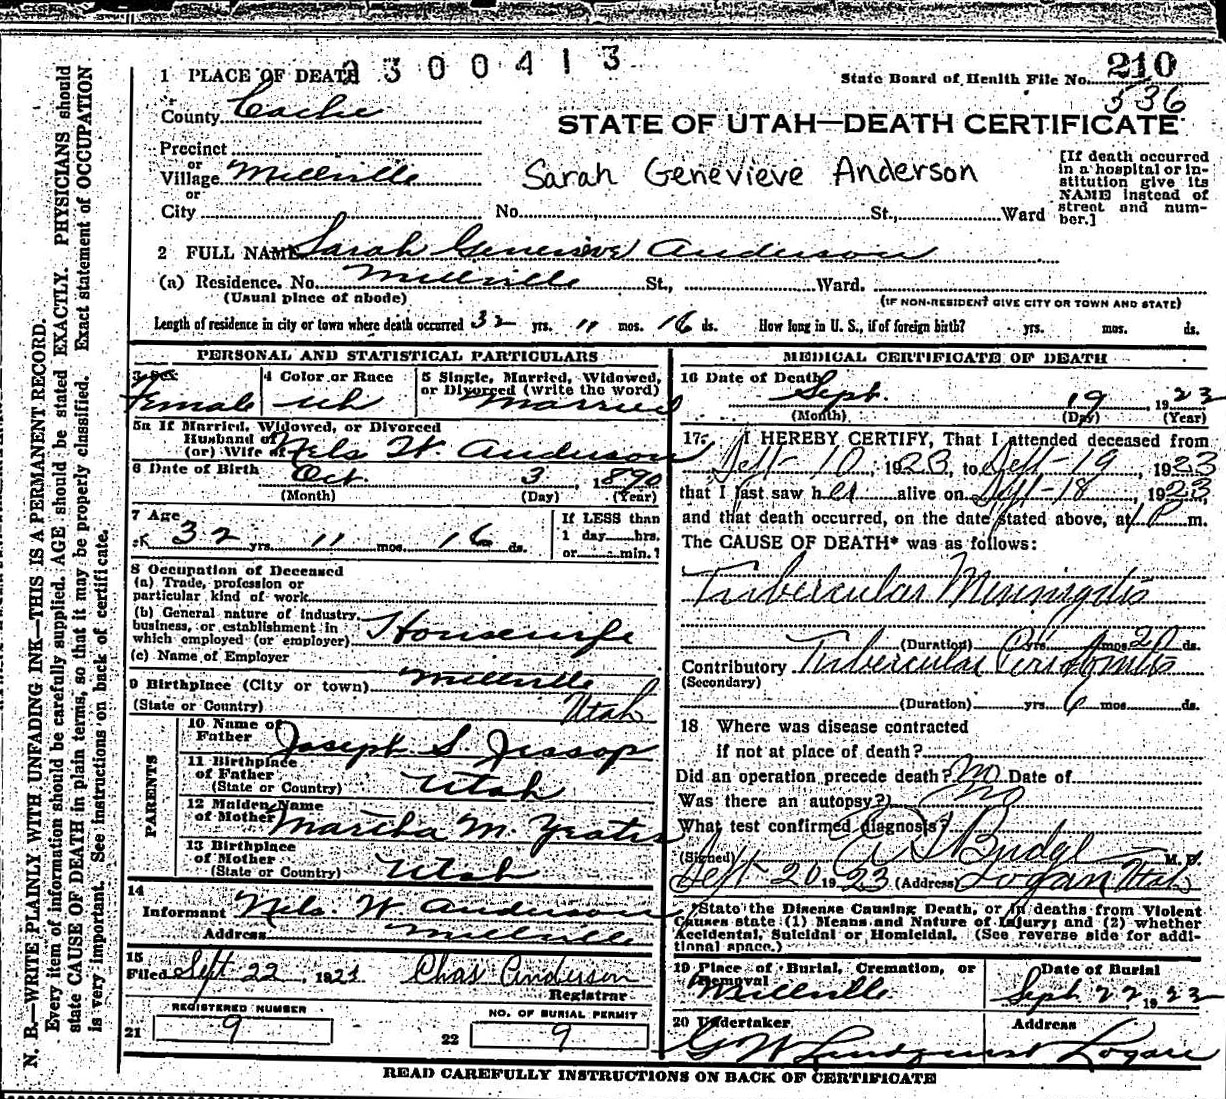 N. B.—WRITE PLAINLY WITH UNFADING INK—THIS IS A PERMANENT RECORD.
Every item of information should be carefully supplied. AGE should be stated EXACTLY. PHYSICIANS should
state CAUSE OF DEATH in plain terms, so that it may be properly classified. Exact statement of OCCUPATION
is very important. See instructions on back of certificate.
2300413
1 PLACE OF DEATH
State Board of Health File No. 210
536
County Cache
STATE OF UTAH—DEATH CERTIFICATE
Precinct
or
Village Millville
or
Sarah Genevieve Anderson
[If death occurred
in a hospital or in-
stitution give its
NAME instead of
street and num-
ber.]
City No. St., Ward
2 FULL NAME Sarah Genevieve Anderson
(a) Residence. No. Millville St., Ward.
(Usual place of abode) (IF NON-RESIDENT GIVE CITY OR TOWN AND STATE)
Length of residence in city or town where death occurred 32 yrs. 11 mos. 16 ds. How long in U. S., if of foreign birth? yrs. mos. ds.
PERSONAL AND STATISTICAL PARTICULARS
3 Sex
Female
4 Color or Race
Wh
5 Single, Married, Widowed,
or Divorced (write the word)
Married
5a If Married, Widowed, or Divorced
Husband of
(or) Wife of Nels W. Anderson
6 Date of Birth Oct. 3, 1890
(Month) (Day) (Year)
7 Age
32 yrs. 11 mos. 16 ds.
If LESS than
1 day hrs.
or min.?
8 Occupation of Deceased
(a) Trade, profession or
particular kind of work
(b) General nature of industry,
business, or establishment in
which employed (or employer) Housewife
(c) Name of Employer
9 Birthplace (City or town) Millville
(State or Country) Utah
PARENTS
10 Name of
Father Joseph S. Jessop
11 Birthplace
of Father
(State or Country) Utah
12 Maiden Name
of Mother Martha M. Yeates
13 Birthplace
of Mother
(State or Country) Utah
14
Informant Nels. W. Anderson
Address Millville
15
Filed Sept 22, 1923 Chas Anderson
Registrar
REGISTERED NUMBER
21 9
NO. OF BURIAL PERMIT
22 9
MEDICAL CERTIFICATE OF DEATH
16 Date of Death
Sept. 19 1923
(Month) (Day) (Year)
17. I HEREBY CERTIFY, That I attended deceased from
Sept-10, 1923, to Sept-19, 1923
that I last saw her alive on Sept-18, 1923,
and that death occurred, on the date stated above, at 1 P m.
The CAUSE OF DEATH* was as follows:
Tubercular Meningitis
(Duration) yrs. mos. 20 ds.
Contributory Tubercular Peritonitis
(Secondary)
(Duration) yrs. 6 mos. ds.
18 Where was disease contracted
if not at place of death?
Did an operation precede death? No Date of
Was there an autopsy? No
What test confirmed diagnosis?
(Signed) Budge M. D.
Sept 20 1923 (Address) Logan Utah
*State the Disease Causing Death, or in deaths from Violent
Causes state (1) Means and Nature of Injury; and (2) whether
Accidental, Suicidal or Homicidal. (See reverse side for addi-
tional space.)
19 Place of Burial, Cremation, or
Removal
Millville
Date of Burial
Sept 22 1923
20 Undertaker Address
G W Lindquist Logan
READ CAREFULLY INSTRUCTIONS ON BACK OF CERTIFICATE